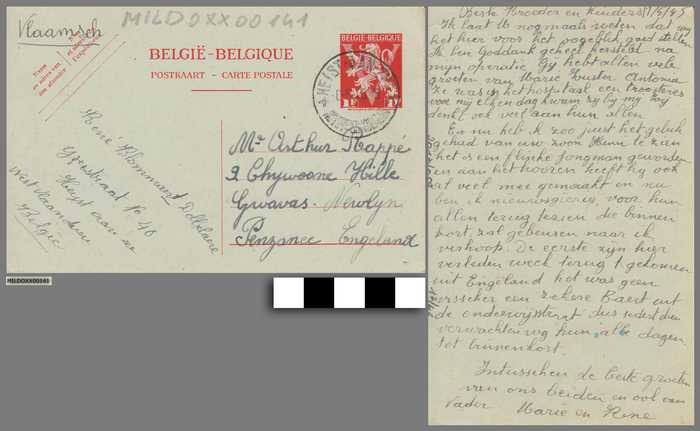 MILDOXX00141
Vlaamsch
BELGIË-BELGIQUE
POSTKAART - CARTE POSTALE
1F
HEIST
René Blommaert Dettelaere
Grasstraat No 46
Heyst aan zee
West Vlaanderen
Belgie
Mr Arthur Rappé
2 Chywoone Hille
Gwavas - Newlyn
Penzance Engeland
MILDOXX00141
Beste Broeder en Kinders 1/5/45
Ik laat U nog maals weten dat wij
het hier voor het oogelijk goed stellen
Ik ben Goddank geheel hersteld na
mijn operatie. Gy hebt allen vele
groeten van Marie Zuster Antonia
Ze was in het hospitaal een troosteres
voor my elken dag kwam zy by my Zy
denkt ook veel aan hun allen
En nu heb ik zoo juist het geluk
gehad van uw zoon Henri te zien
het is een flinke jongman geworden
en aan het hooren heeft hy ook
al veel mee gemaakt en nu
ben ik nieuwsgierig voor hun
allen terug te zien die binnen
kort zal gebeuren naar ik
verhoop. De eerste zijn hier
verleden week terug gekomen
uit Engeland het was geen
visscher een zekere Baert uit
de onderwijsstraat dus sedert dien
verwachten wij hun alle dagen
tot binnenkort.
Intusschen de beste groeten
van ons beiden en ook van
Vader Marie en Rene